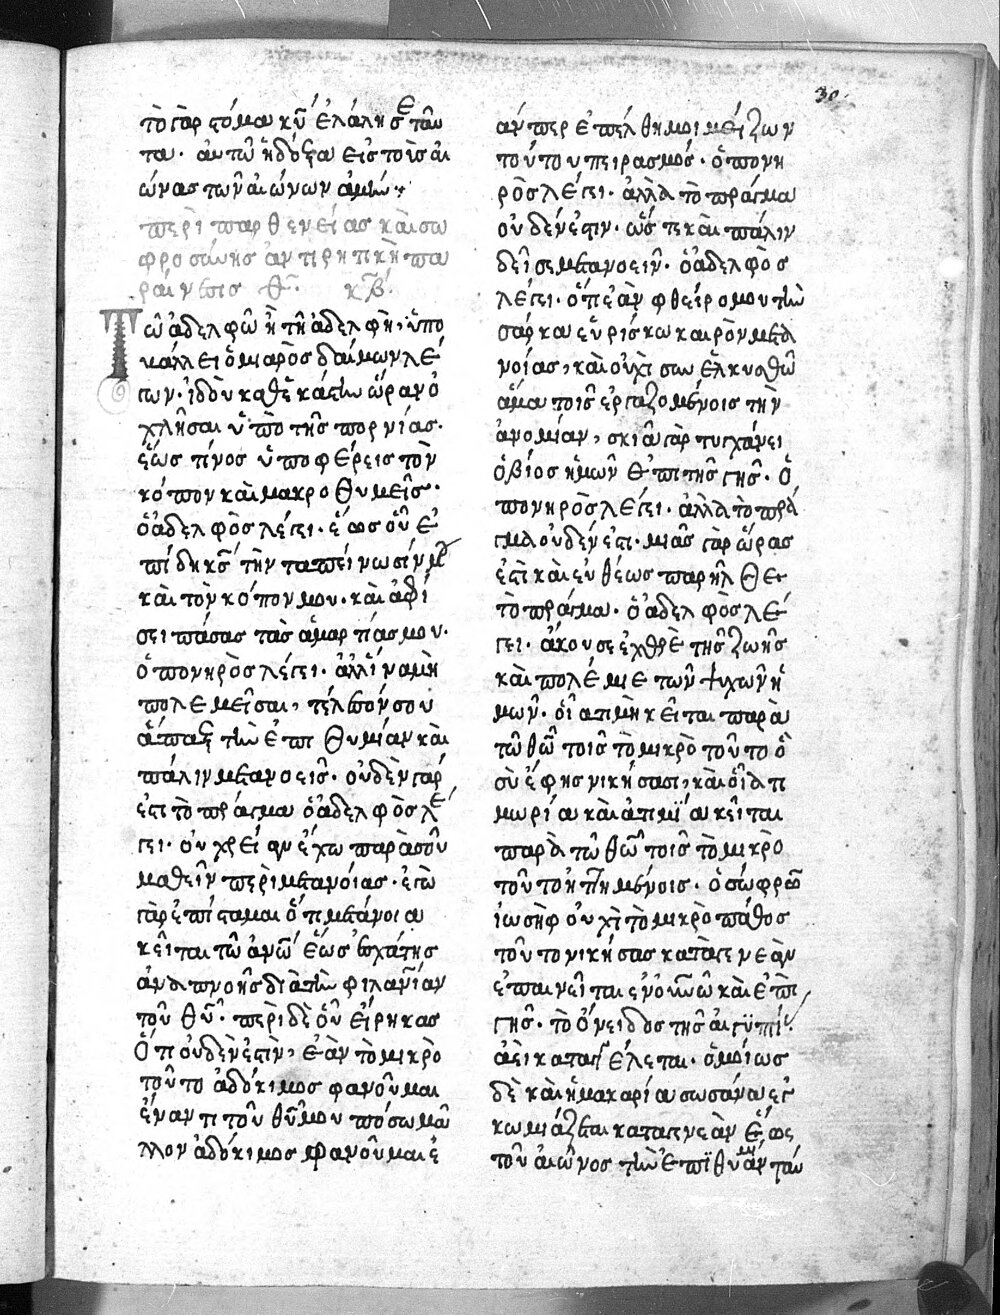 30
τὸ γὰρ στόμα κυ ἐλάλησε ταῦ
τα· αὐτῶ ἡ δόξα εἰς τοὺς αἰ
ώνας τῶν αἰώνων ἀμήν
περὶ παρθενείας καὶ σω
φροσύνης ἀντιρητικὴ πα
ραίνεσις κβ
Τῶ ἀδελφῶ ἢ τῆ ἀδελφῆ, ὑπο
βάλλει ὁ μιαρὸς δαίμων λέ
γων· ἰδοὺ καθεκάστην ὥραν ὀ
χλῆσαι ὑπὸ τῆς πορνίας·
ἕως τίνος ὑποφέρεις τὸν
κόπον καὶ μακροθυμεῖς·
ὁ ἀδελφὸς λέγει· ἕως οὗ ἐ
πίδη κς τὴν ταπείνωσίν μου
καὶ τὸν κόπον μου· καὶ ἀφί
σει πάσας τὰς ἁμαρτίας μου·
ὁ πονηρὸς λέγει· ἀλλ' ἵνα μὴ
πολεμεῖσαι, τέλεσόν σου
ἅπαξ τὴν ἐπιθυμίαν καὶ
πάλιν μετανοεῖς· οὐδὲν γάρ
ἐστι τὸ πράγμα ὁ ἀδελφὸς λέ
γει· οὐ χρείαν ἔχω παρὰ σοῦ
μαθεῖν περὶ μετανοίας· ἐγὼ
γὰρ ἐπίσταμαι ὅτι μετάνοια
κεῖται τῶ ἀνω ἕως ἐσχάτης
ἀναπνοῆς διὰ τὴν φιλανίαν
τοῦ θυ· περὶ δὲ οὗ εἴρηκας
ὅτι οὐδὲν ἐστὶν, ἐὰν τὸ μικρὸ
τοῦτο ἀδόκιμος φανοῦμαι
ἔναντι τοῦ θυ μου πόσω μᾶ
λλον ἀδόκιμος φανοῦμαι ἐ
άνπερ ἐπέλθη μοι μείζων
τούτου πειρασμός· ὁ πονη
ρὸς λέγει· ἀλλὰ τὸ πράγμα
οὐδὲν ἐστιν· ὥς τε καὶ πάλιν
δεῖ σε μετανοεῖν· ὁ ἀδελφὸς
λέγει· ὅτε ἐὰν φθείρομου τὴν
σάρκα εὑρίσκω καιρὸν μετα
νοίας, καὶ οὐχὶ συνελκυσθῶ
ἅμα τοῖς ἐργαζομένοις τὴν
ἀνομίαν, σκιὰ γὰρ τυγχάνει
ὁ βίος ἡμῶν ἐπὶ τῆς γῆς· ὁ
πονηρὸς λέγει· ἀλλὰ τὸ πρά
γμα οὐδὲν ἐστι· μιᾶς γὰρ ὥρας
ἐστὶ καὶ εὐθέως παρῆλθε
τὸ πράγμα· ὁ ἀδελφὸς λέ
γει· ἄκουσε ἐχθρὲ τῆς ζωῆς
καὶ πολέμιε τῶν ψυχῶν ἡ
μῶν· οἵα τιμὴ κεῖται παρὰ
τῶ θω τοῖς τὸ μικρὸ τοῦτο ὃ
σὺ ἔφης νικήσασι, καὶ οἵα τι
μωρία καὶ ἀτιμία κεῖται
παρὰ τῶ θω τοῖς τὸ μικρὸ
τοῦτο ἡττημένοις· ὁ σώφρω
ἰωσὴφ οὐχὶ τὸ μικρὸ πάθος
τοῦτο νικήσας κατὰ γενεὰν
ἐπαινεῖται ἐν οὐνω καὶ ἐπὶ
γῆς· τὸ ὄνειδος τῆς αἰγυπτί
ἀεὶ καταγγέλεται· ὁμοίως
δὲ καὶ ἡ μακαρία σωσάνα ἐγ
κωμιάζεται κατὰ γενεὰν ἕως
τοῦ αἰῶνος τὴν ἐπιθυμίαν ταύ